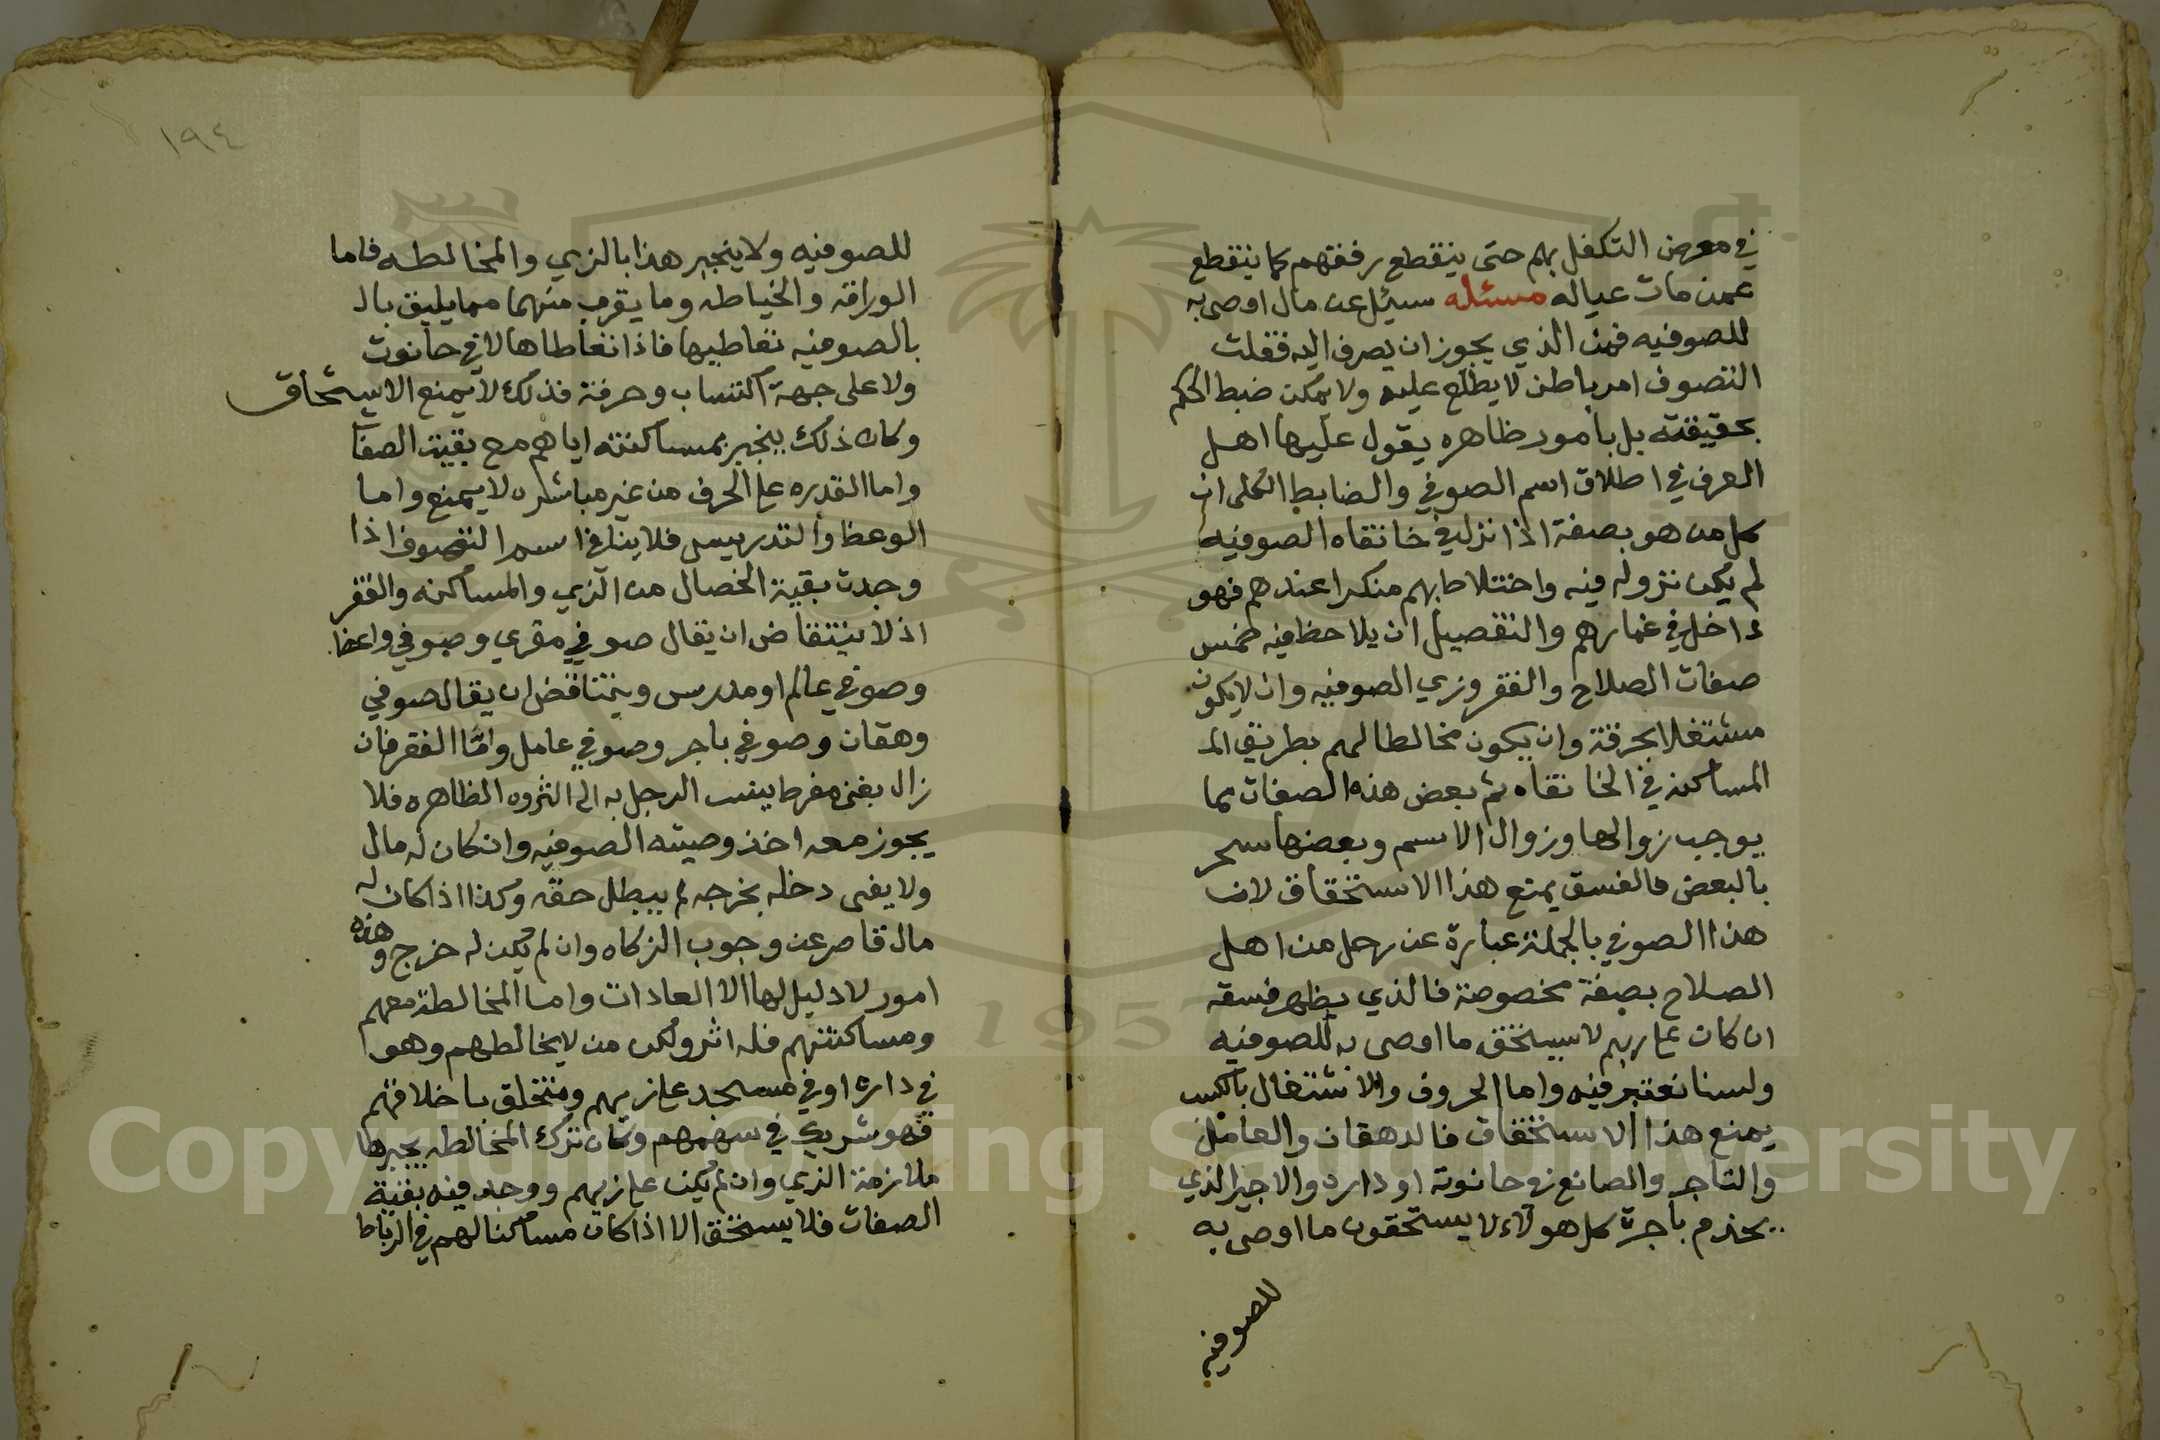 في معرض التكفل بهم حتى ينقطع رفقتهم كما ينقطع
عمن مات عياله مسئله سيئل عن مال اوصى به
للصوفيه فمن الذي يجوز ان يصرف اليه فقلت
التصوف امر باطن لا يطلع عليه ولا يمكن ضبط الحكم
بحقيقته بل بامور ظاهره يقول عليها اهل
العرف في اطلاق اسم الصوفي والضابط الكلى ان
كل من هو بصفة اذا نزل في خانقاه الصوفيه
لم يكن نزوله فيه واختلاطا بهم منكرا عندهم فهو
داخل في غمارهم والتفصيل ان يلاحظ فيه خمس
صفات الصلاح والفقر وزي الصوفيه وان لا يكون
مشتغلا بحرفة وان يكون مخالطا لهم بطريق الم
المساكنه في الخانقاه ثم بعض هذه الصفات مما
يوجب زوالها وزوال الاسم وبعضها
بالبعض فالفسق يمنع هذا الاستحقاق لان
هذا الصوفي بالجملة عبارة عن رجل من اهل
الصلاح بصفة مخصوصة فالذي يظهر فسقه
ان كان على زيهم لا يستحق ما اوصى به للصوفيه
ولسنا نعتبر فيه واما الحروف والاشتغال بالكسب
يمنع هذا الاستحقاق فالدهقان والعامل
والتاجر والصانع في حانوته او داره والاجير الذي
يخدم باجرة كل هولاء لا يستحقون ما اوصى به
للصوفيه
١٩٤
للصوفيه ولا ينجبر هذا بالزي والمخالطه فاما
الوراقه والخياطه وما يقرب منهما مما يليق بال
بالصوفيه تعاطيها فاذا تعاطاها لا في حانوت
ولا على جهة اكتساب وحرفة فذلك لا يمنع الاستحقاق
وكان ذلك ينجبر بمساكنته اياهم مع بقية الصفات
واما القدره على الحرف من غير مباشره لا يمنع واما
الوعظ والتدريس فلا ينافي اسم التصوف اذا
وجدت بقية الخصال من الزي والمساكنه والفقر
اذ لا يتناقض ان يقال صوفي مقري وصوفي واعظ
وصوفي عالم او مدرس ويتناقض ان يقال صوفي
وهقان وصوفي تاجر وصوفي عامل واما الفقر فان
زال بغنى مفرط ينسب الرجل به الى الثروه الظاهره فلا
يجوز معه اخذ وصيته الصوفيه وان كان له مال
ولا يفى دخله بخرجه لم يبطل حقه وكذا اذا كان له
مال قاصر عن وجوب الزكاه وان لم يكن له خرج وهذه
امور لا دليل لها الا العادات واما المخالطة معهم
ومساكنتهم فله اثر ولكن من لا يخالطهم وهو
في داره او في مسجد على زيهم ومتخلق باخلاقهم
فهو شريك في سهمهم وكان ترك المخالطه يجبرها
ملازمة الزي وان لم يكن على زيهم ووجد فيه بقية
الصفات فلا يستحق الا اذا كان مساكنا لهم في الرباط
1957
Copyright © King Saud University